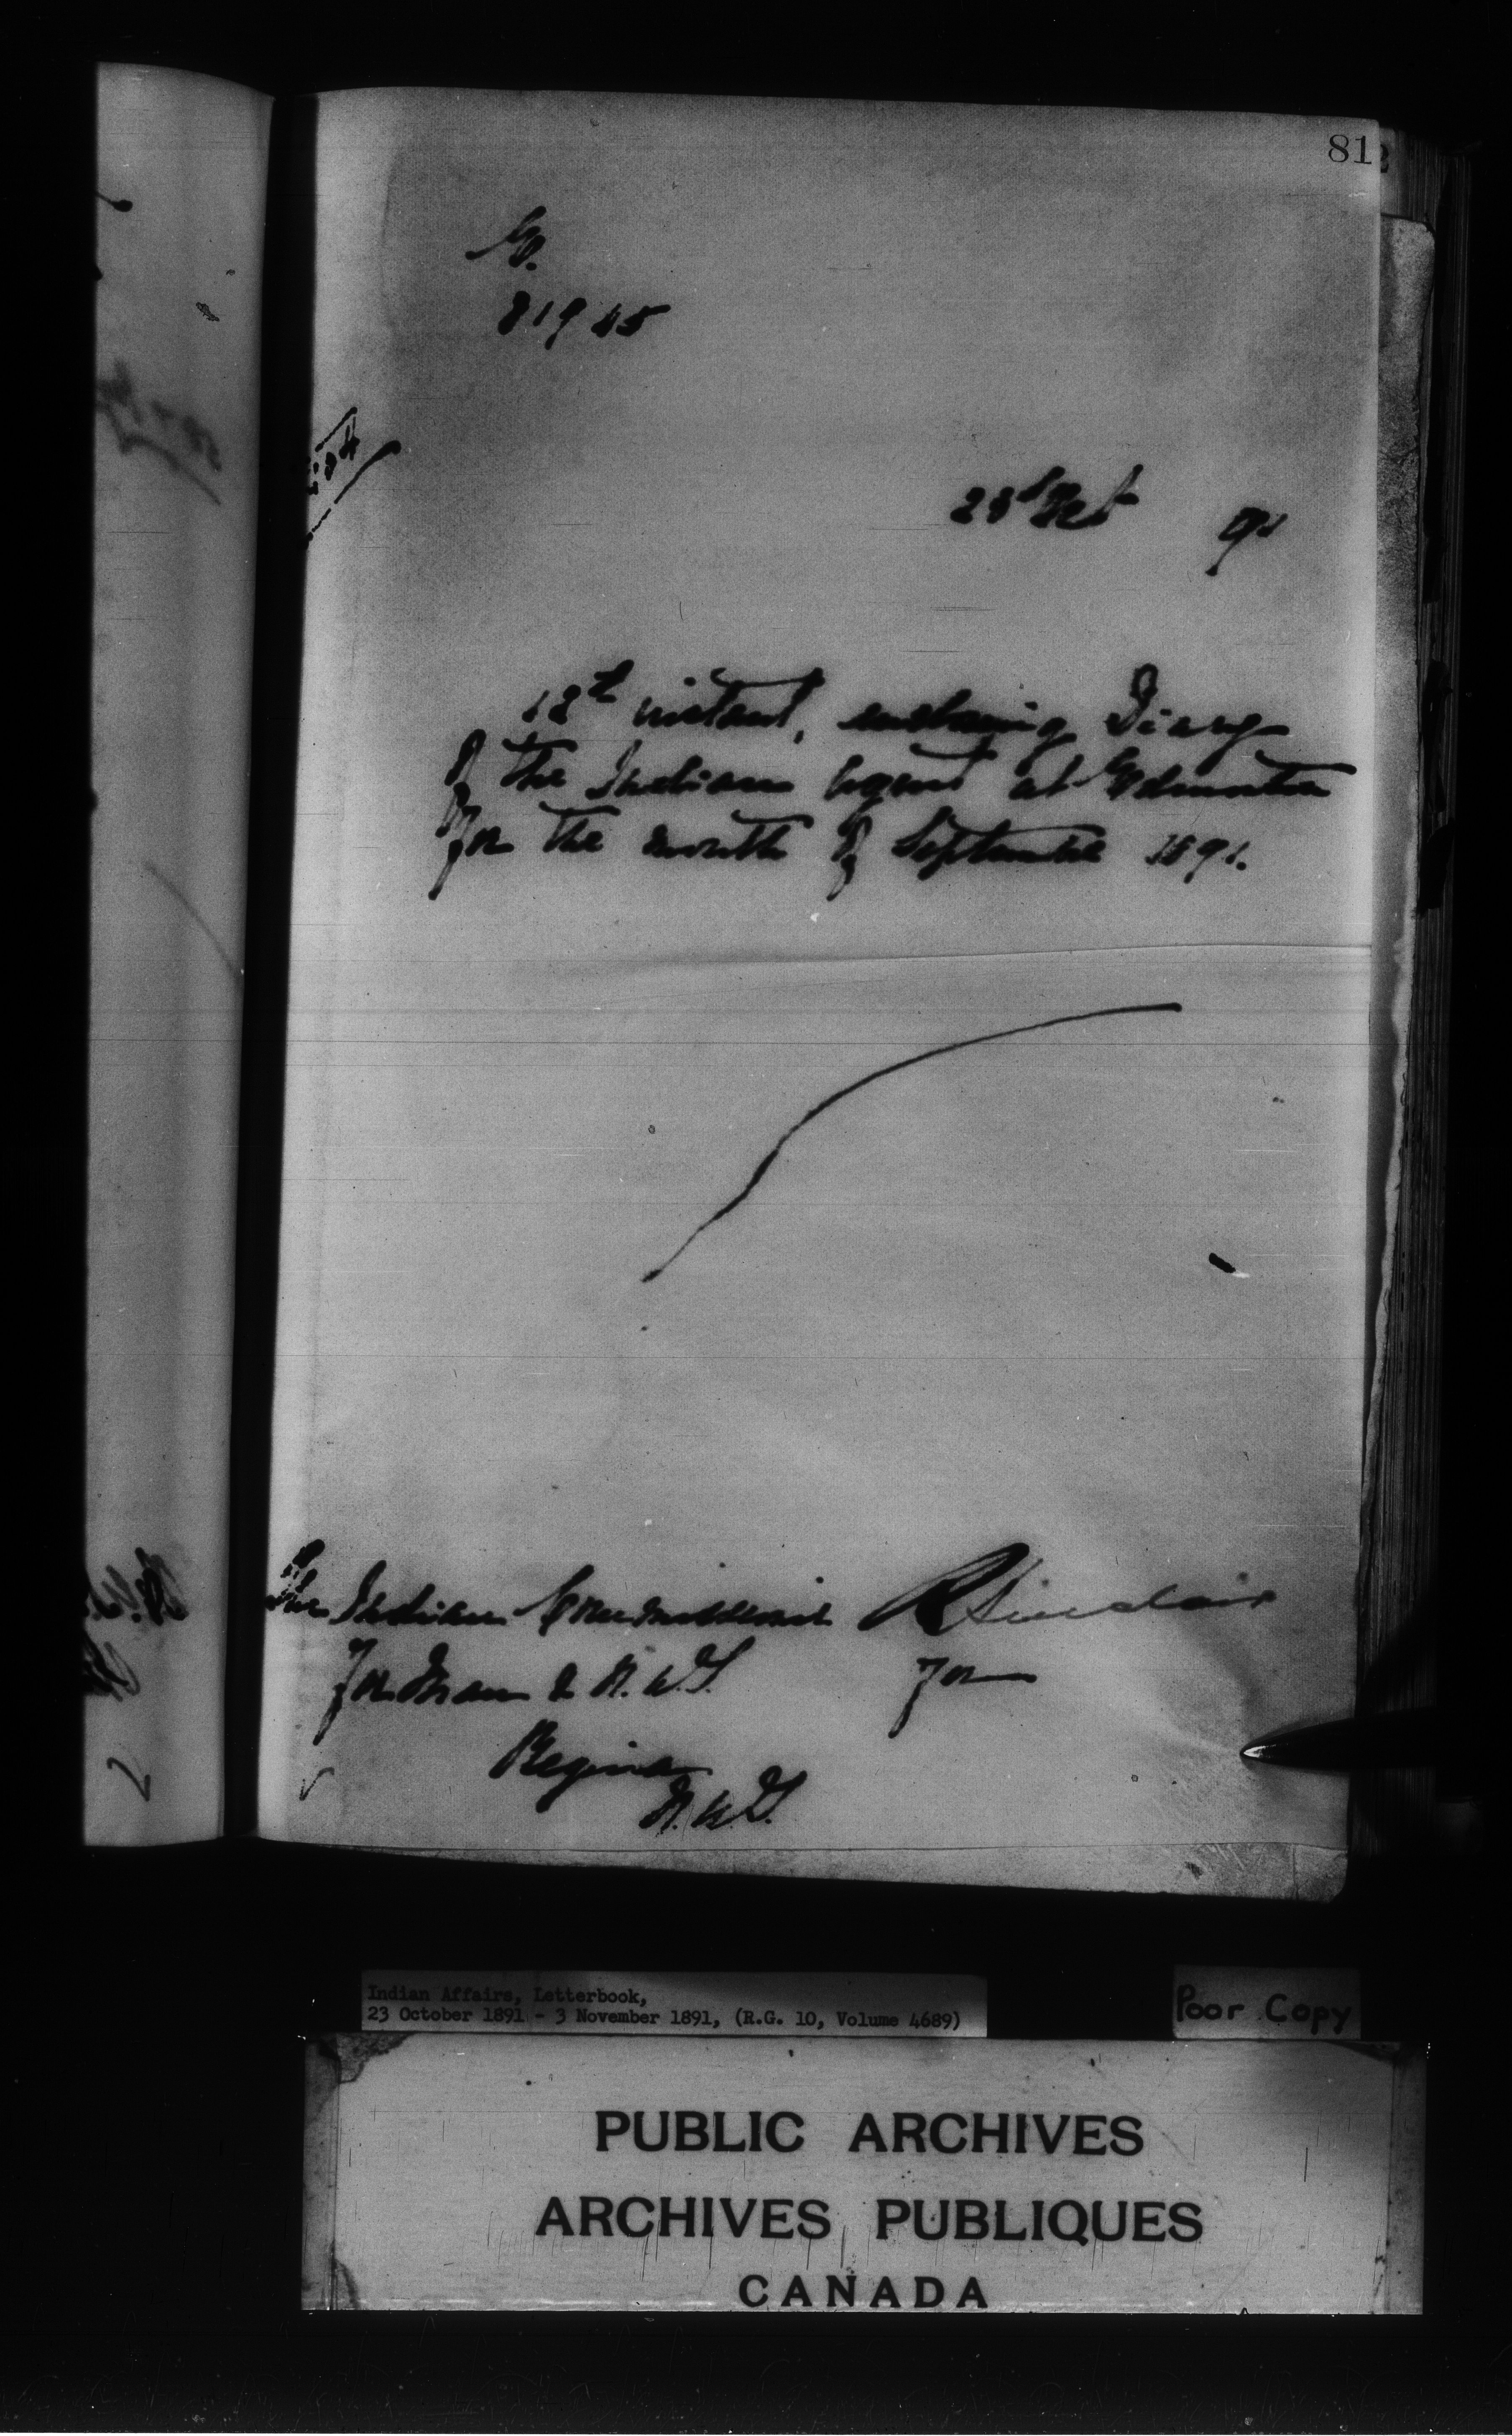 81
81945
23d Oct 91
18th instant, enclosing Diary
of the Indian Agent at Edmonton
for the month of September 1891.
The Indian Commissioner RSinclair
for Man & N.W.T. for
Regina
N.W.T.
Indian Affairs, Letterbook,
23 October 1891 - 3 November 1891, (R.G. 10, Volume 4689)
Poor Copy
PUBLIC ARCHIVES
ARCHIVES PUBLIQUES
CANADA